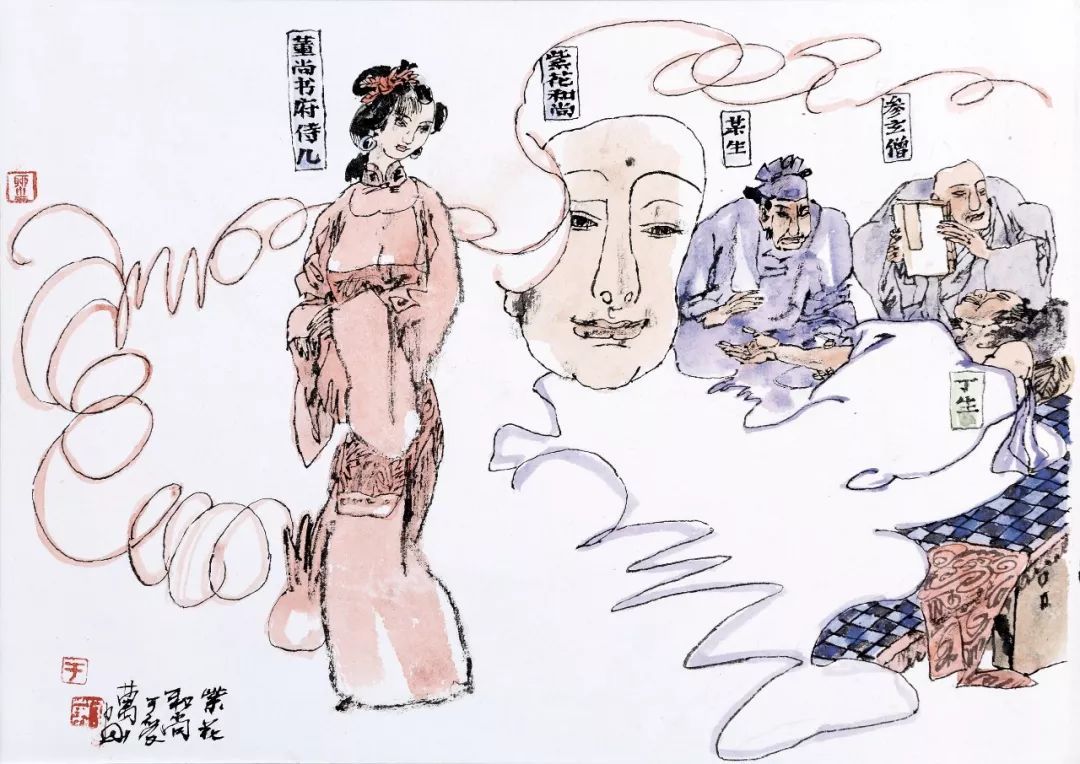 董尚书府侍儿
紫花和尚
某生
参玄僧
丁生
紫花
和尚
可爱